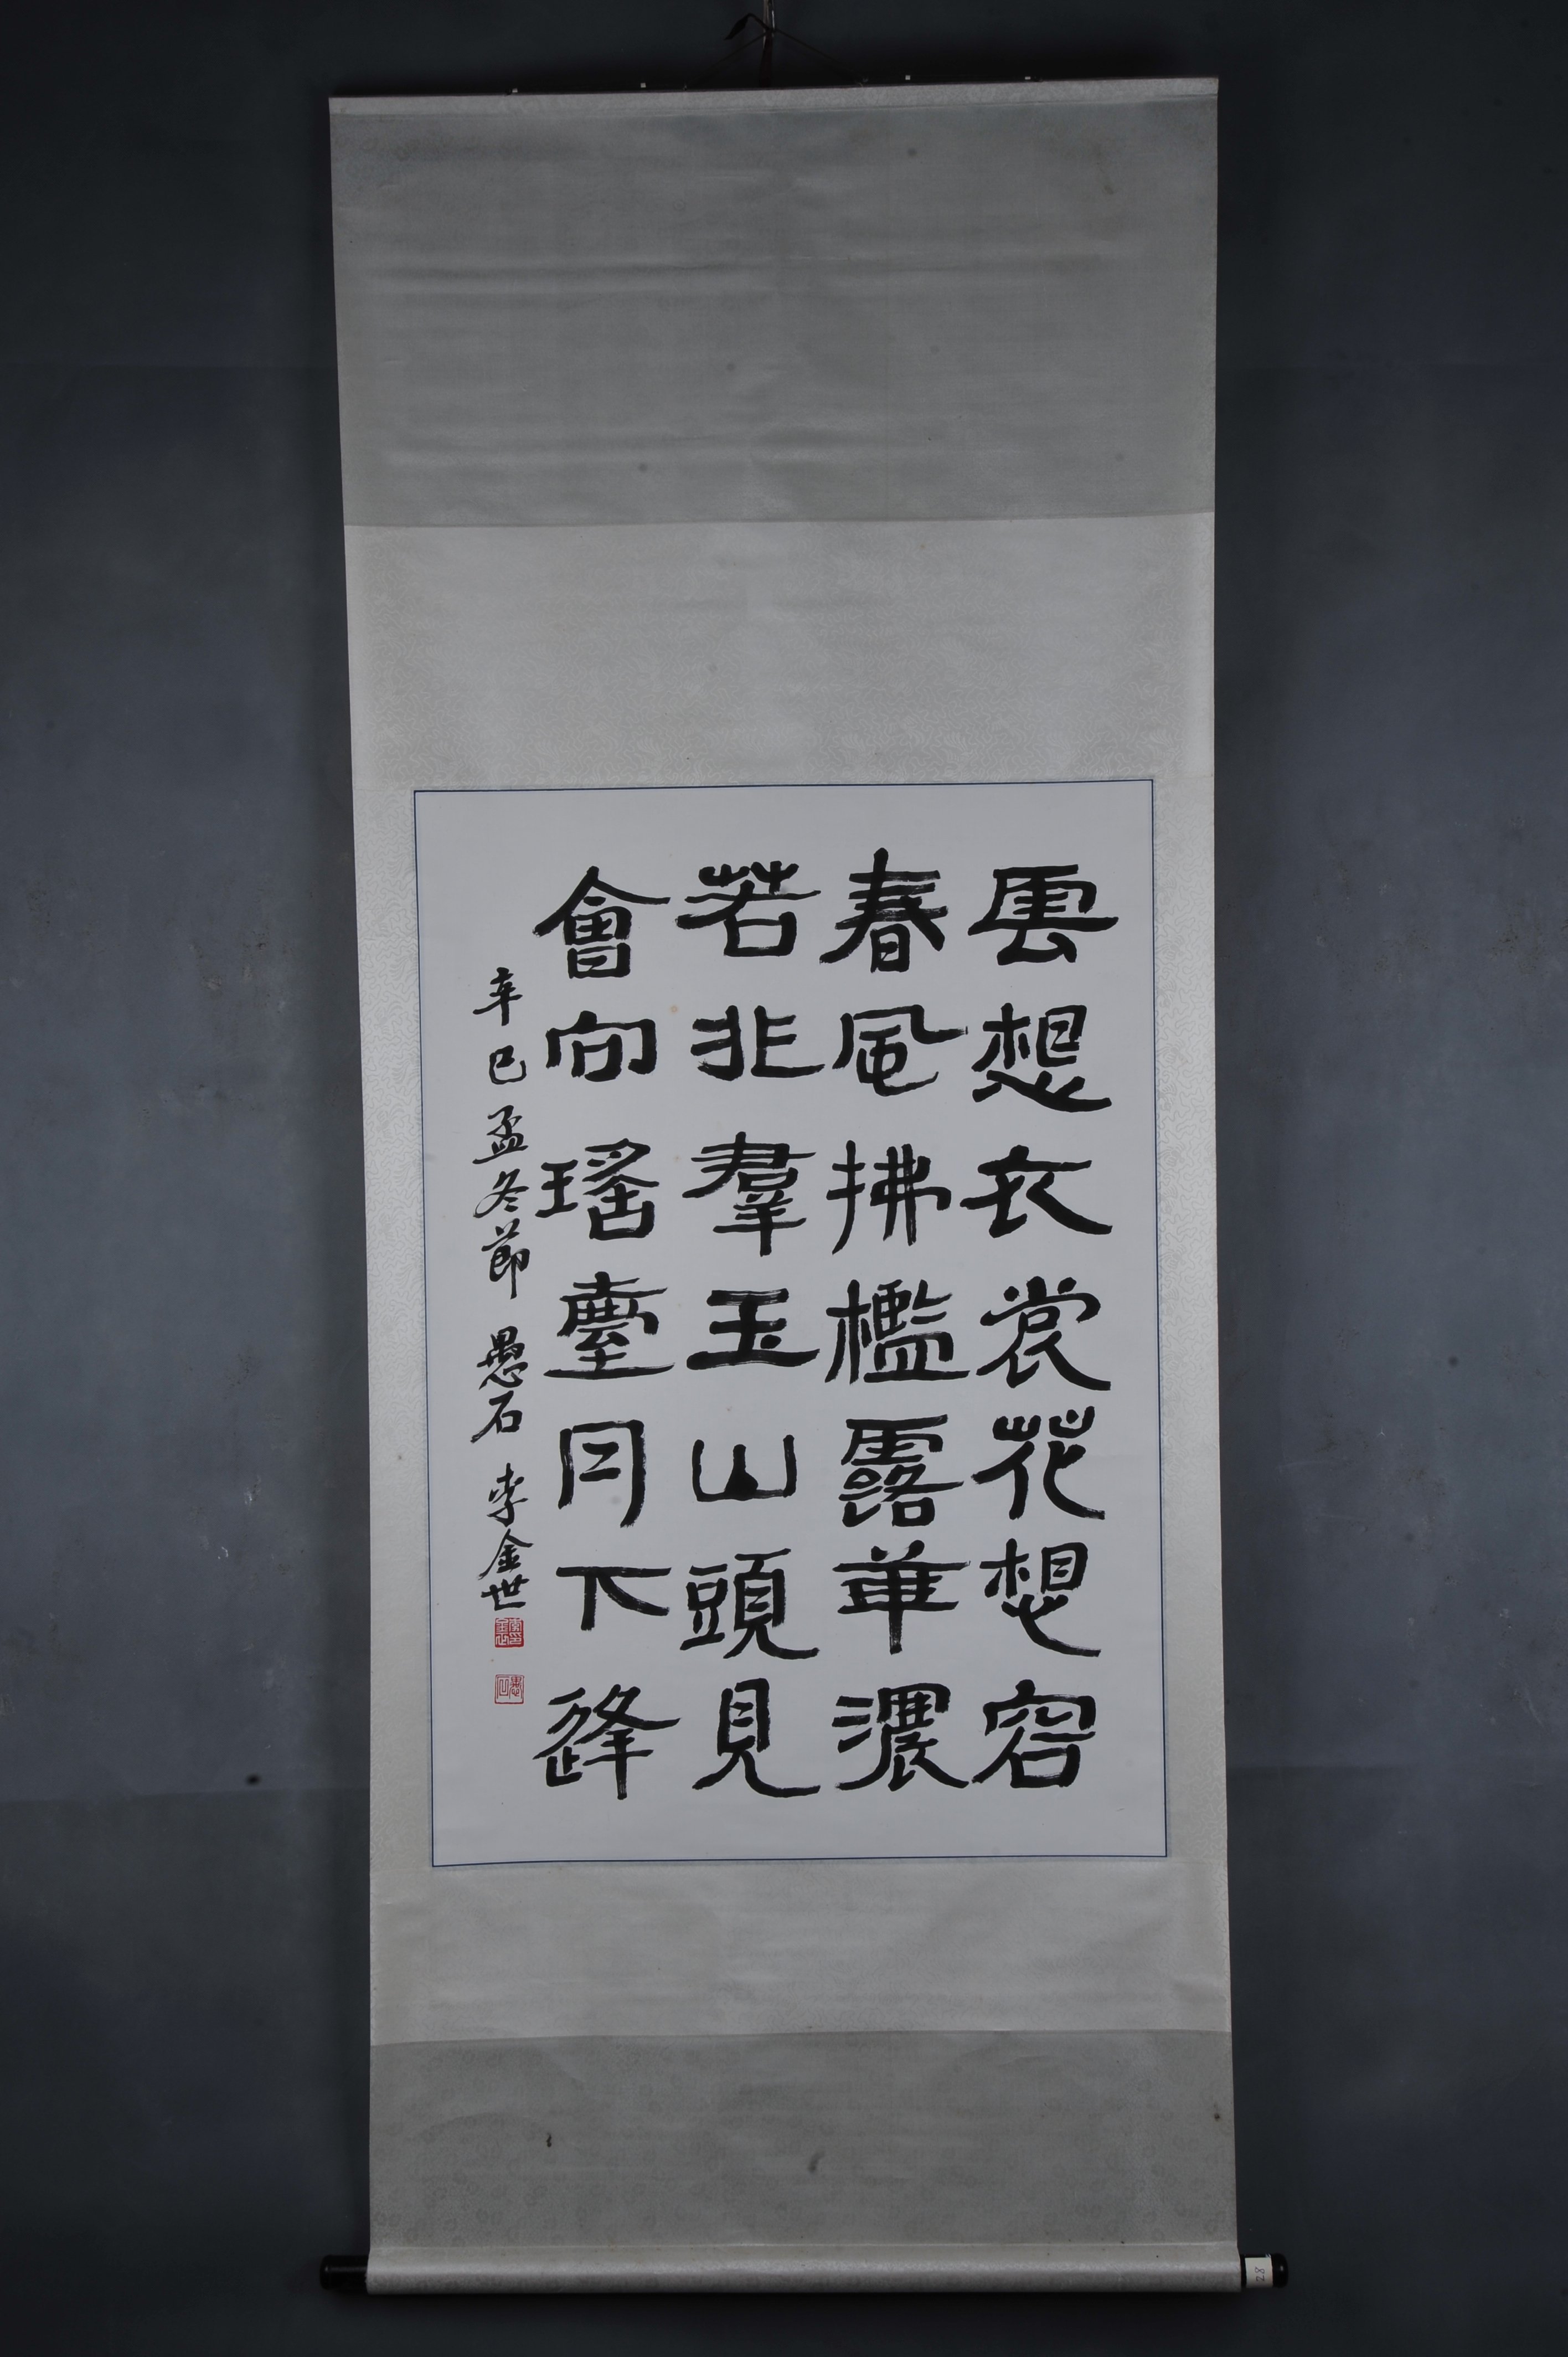 雲想衣裳花想容
春風拂檻露華濃
若非羣玉山頭見
會向瑤臺月下逢
辛巳孟冬節 愚石 李金世
愚石
28